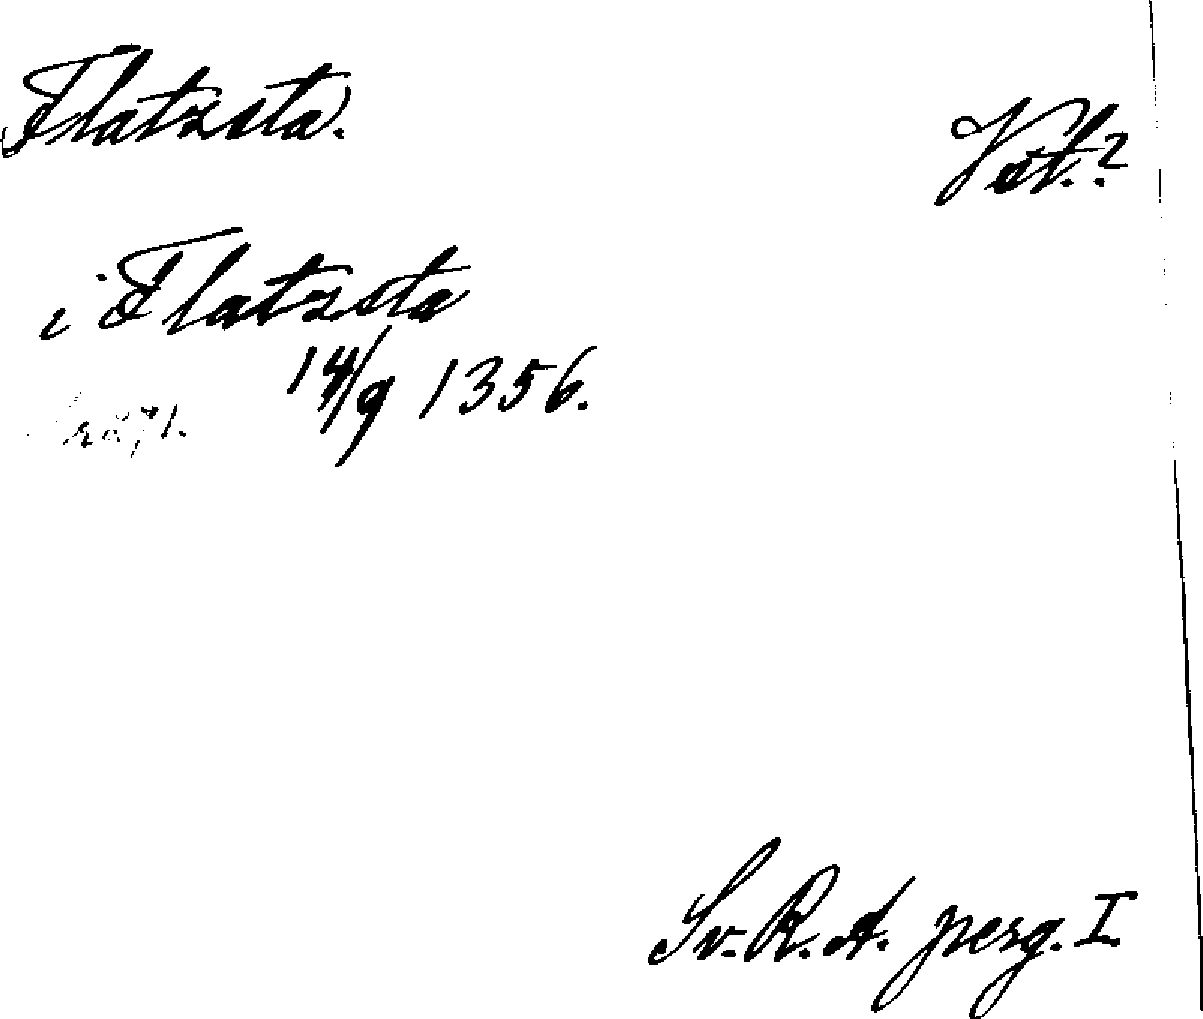 Flatzsta.
Vstl.?
i Flatzsta
14/9 1356.
Sv. R. A. perg. I.